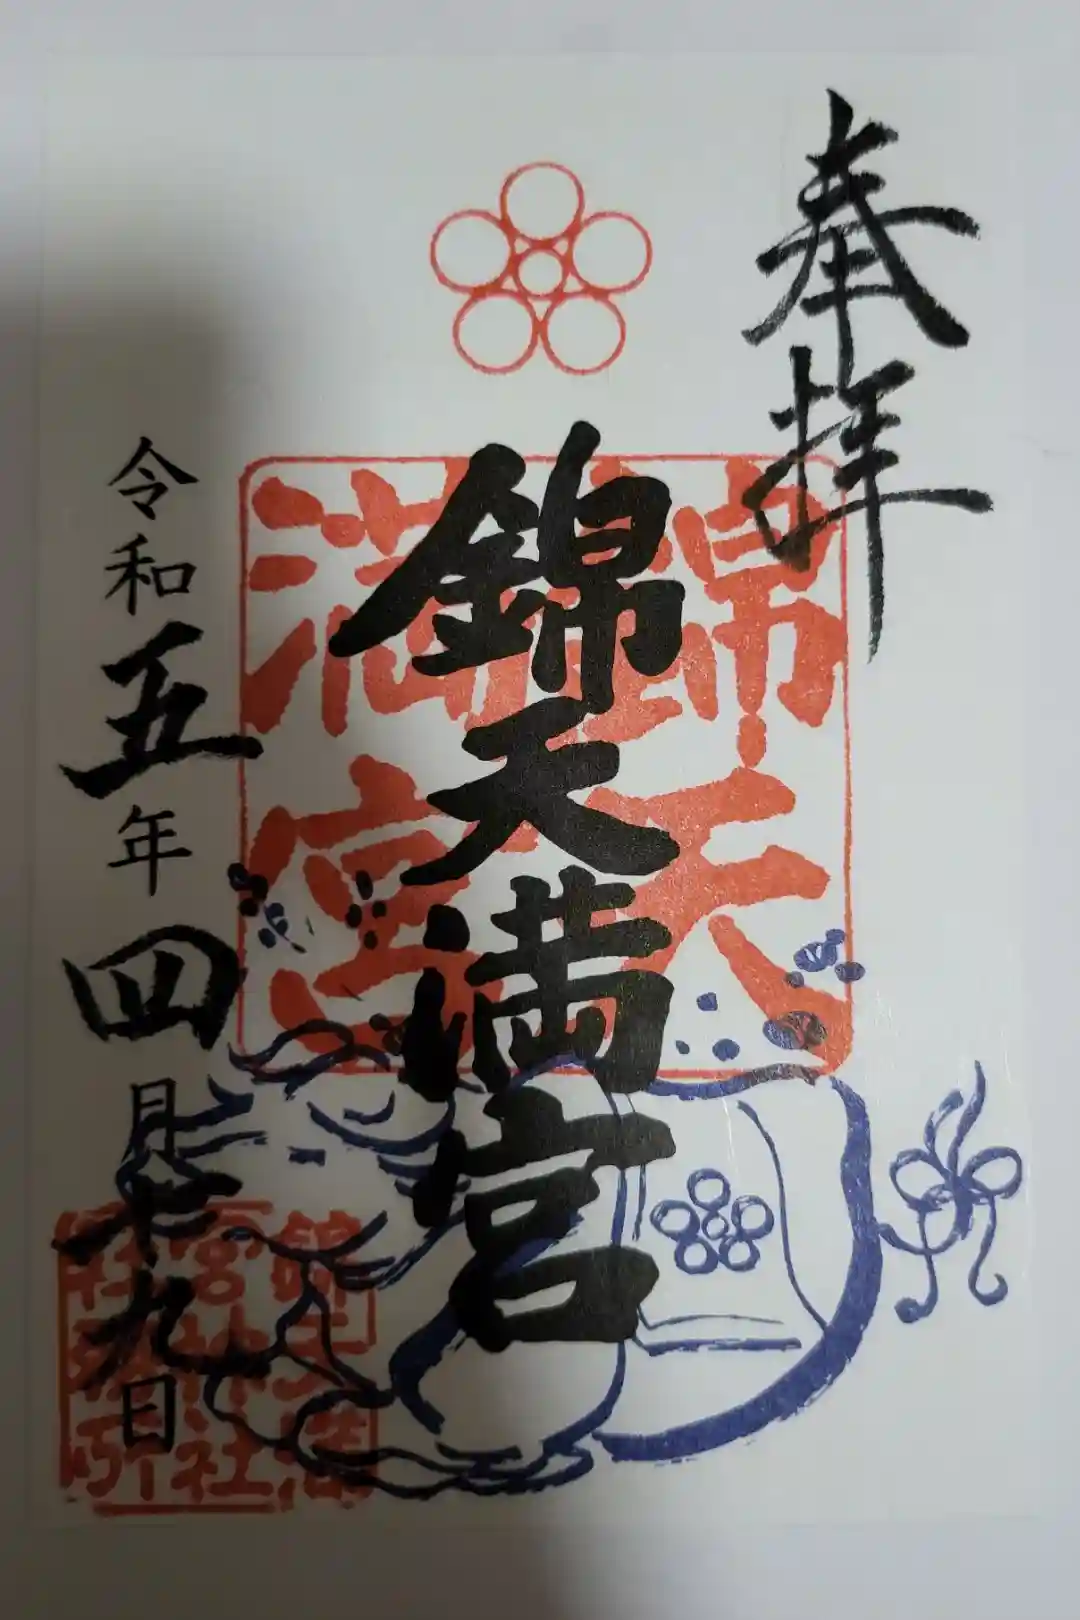 奉拝
錦天満宮
令和五年四月二十九日
錦天
満宮
錦天満
宮神社